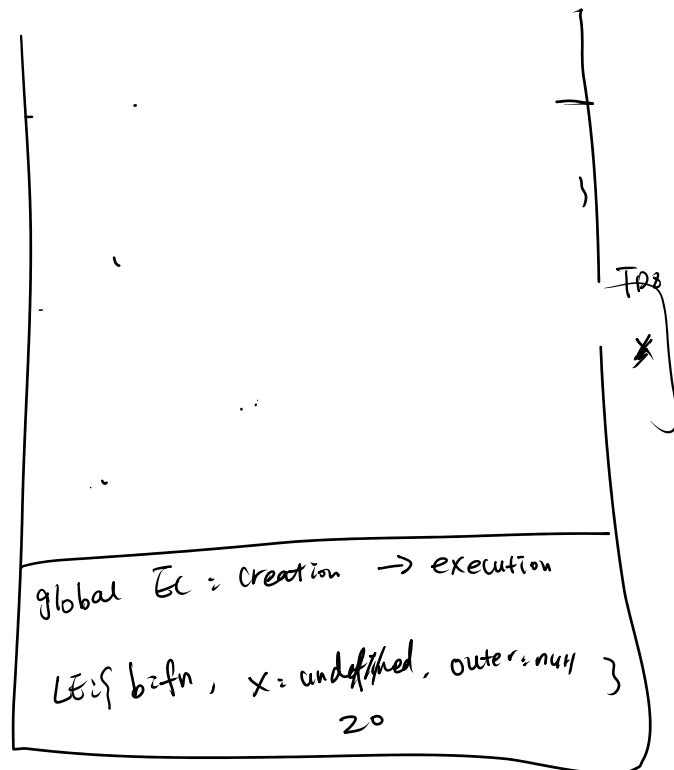 TDZ
x
global EC : creation → execution
LE:{ b=fn, x = undefined, outer:null }
20